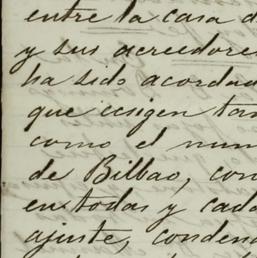 entre la casa d
y sus acreedore
ha sido acordad
que exigen tan
como el num
de Bilbao, con
en todas y cada
ajuste, conden